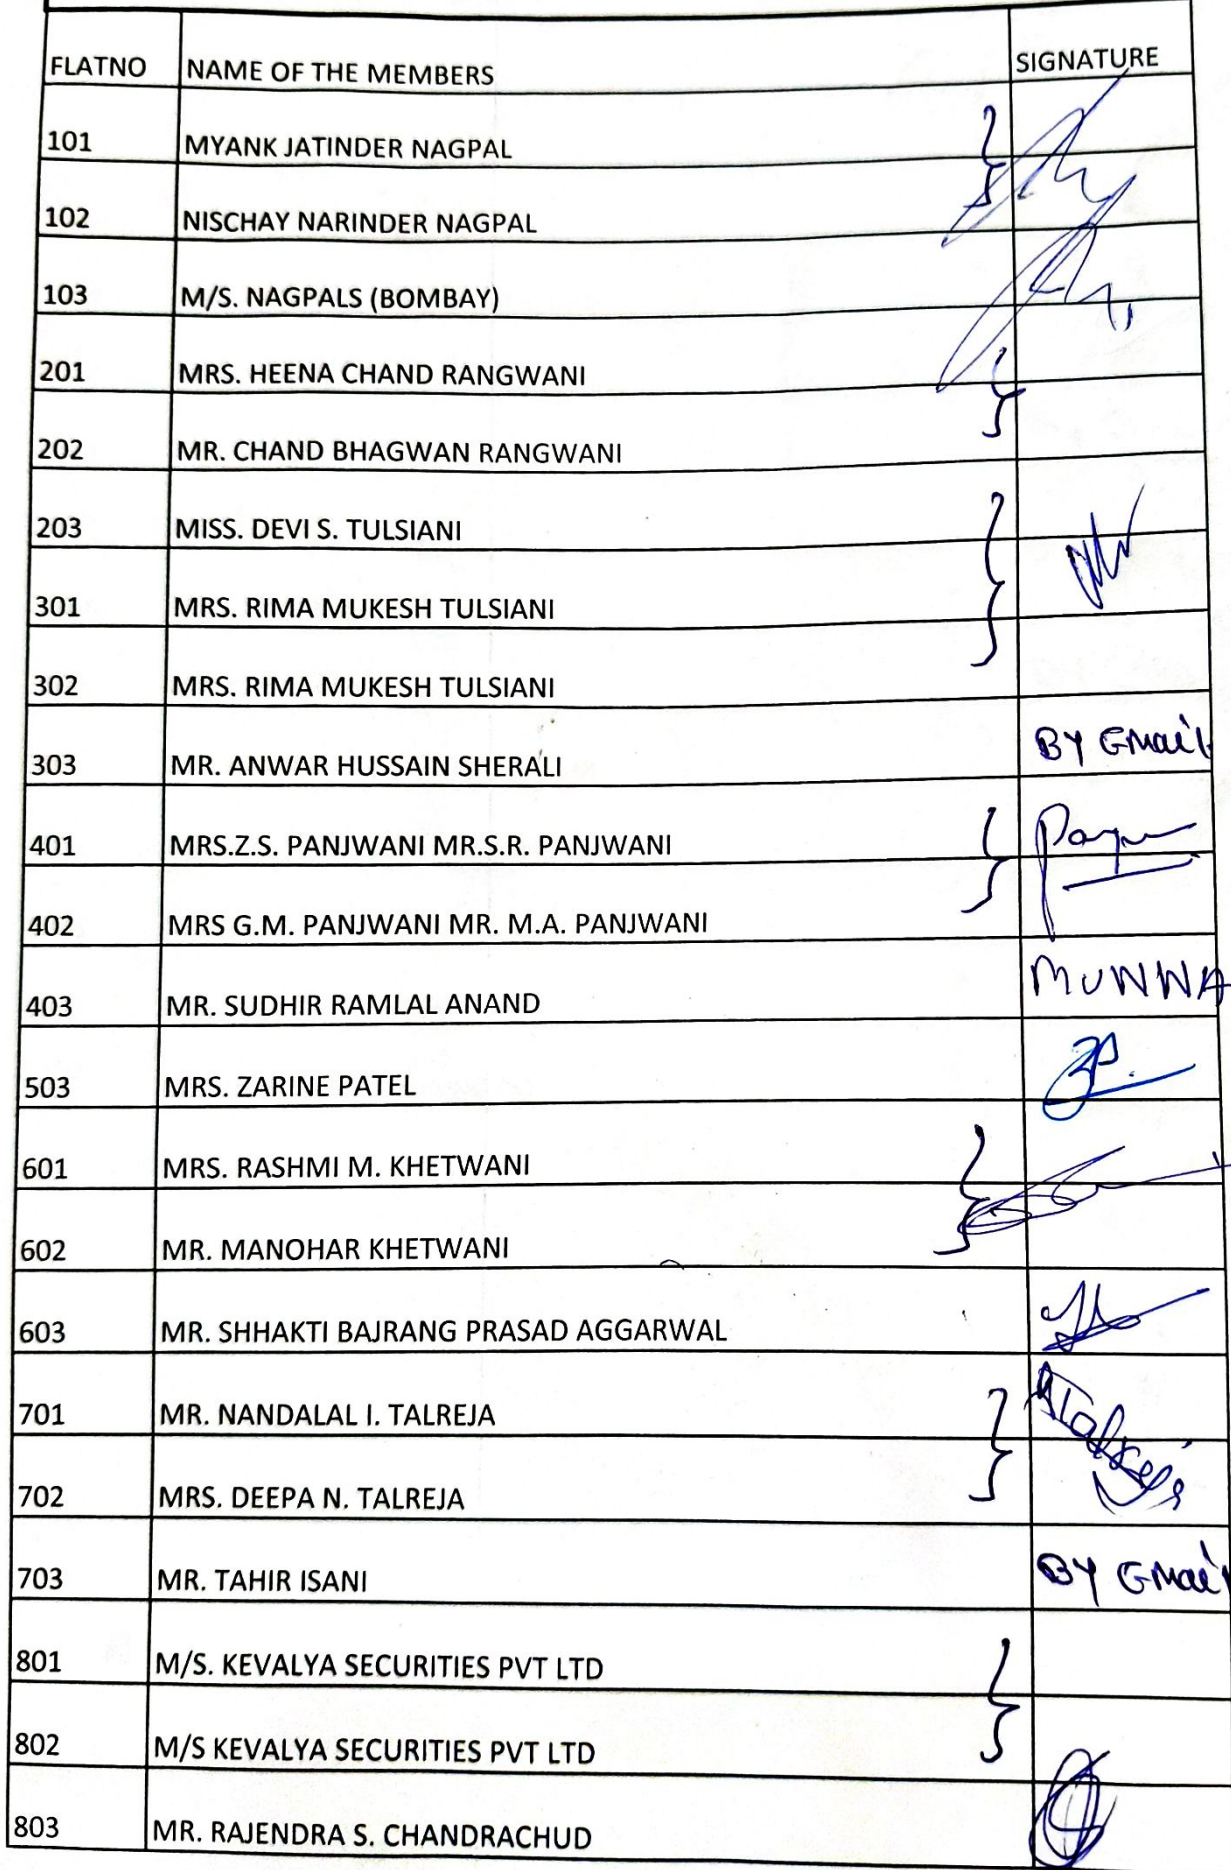 FLATNO NAME OF THE MEMBERS SIGNATURE
101 MYANK JATINDER NAGPAL
102 NISCHAY NARINDER NAGPAL
103 M/S. NAGPALS (BOMBAY)
201 MRS. HEENA CHAND RANGWANI
202 MR. CHAND BHAGWAN RANGWANI
203 MISS. DEVI S. TULSIANI
301 MRS. RIMA MUKESH TULSIANI
302 MRS. RIMA MUKESH TULSIANI
303 MR. ANWAR HUSSAIN SHERALI BY GMail
401 MRS.Z.S. PANJWANI MR.S.R. PANJWANI
402 MRS G.M. PANJWANI MR. M.A. PANJWANI
403 MR. SUDHIR RAMLAL ANAND MUNNA
503 MRS. ZARINE PATEL
601 MRS. RASHMI M. KHETWANI
602 MR. MANOHAR KHETWANI
603 MR. SHHAKTI BAJRANG PRASAD AGGARWAL
701 MR. NANDALAL I. TALREJA
702 MRS. DEEPA N. TALREJA
703 MR. TAHIR ISANI BY GMail
801 M/S. KEVALYA SECURITIES PVT LTD
802 M/S KEVALYA SECURITIES PVT LTD
803 MR. RAJENDRA S. CHANDRACHUD